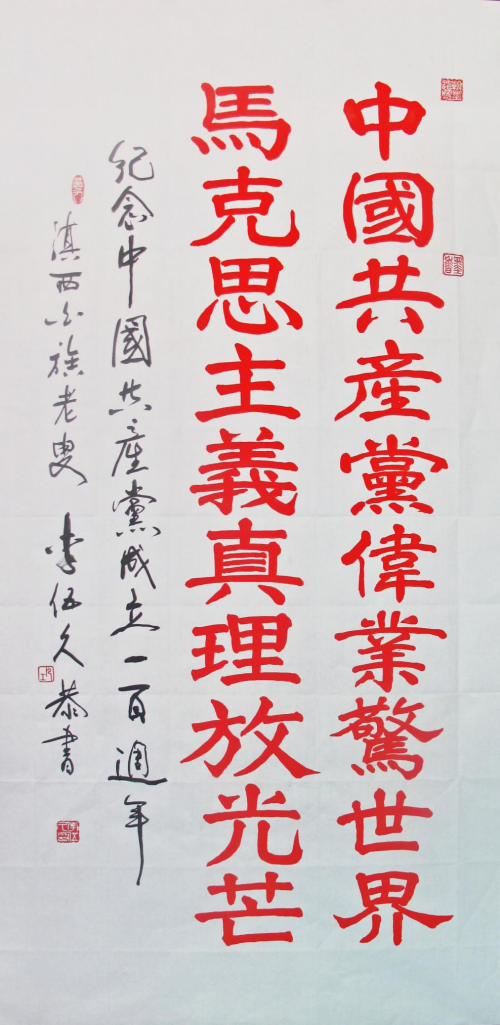 中國共産黨偉業驚世界
馬克思主義真理放光芒
紀念中國共產黨成立一百週年
滇西白族老叟 李伍久 恭書